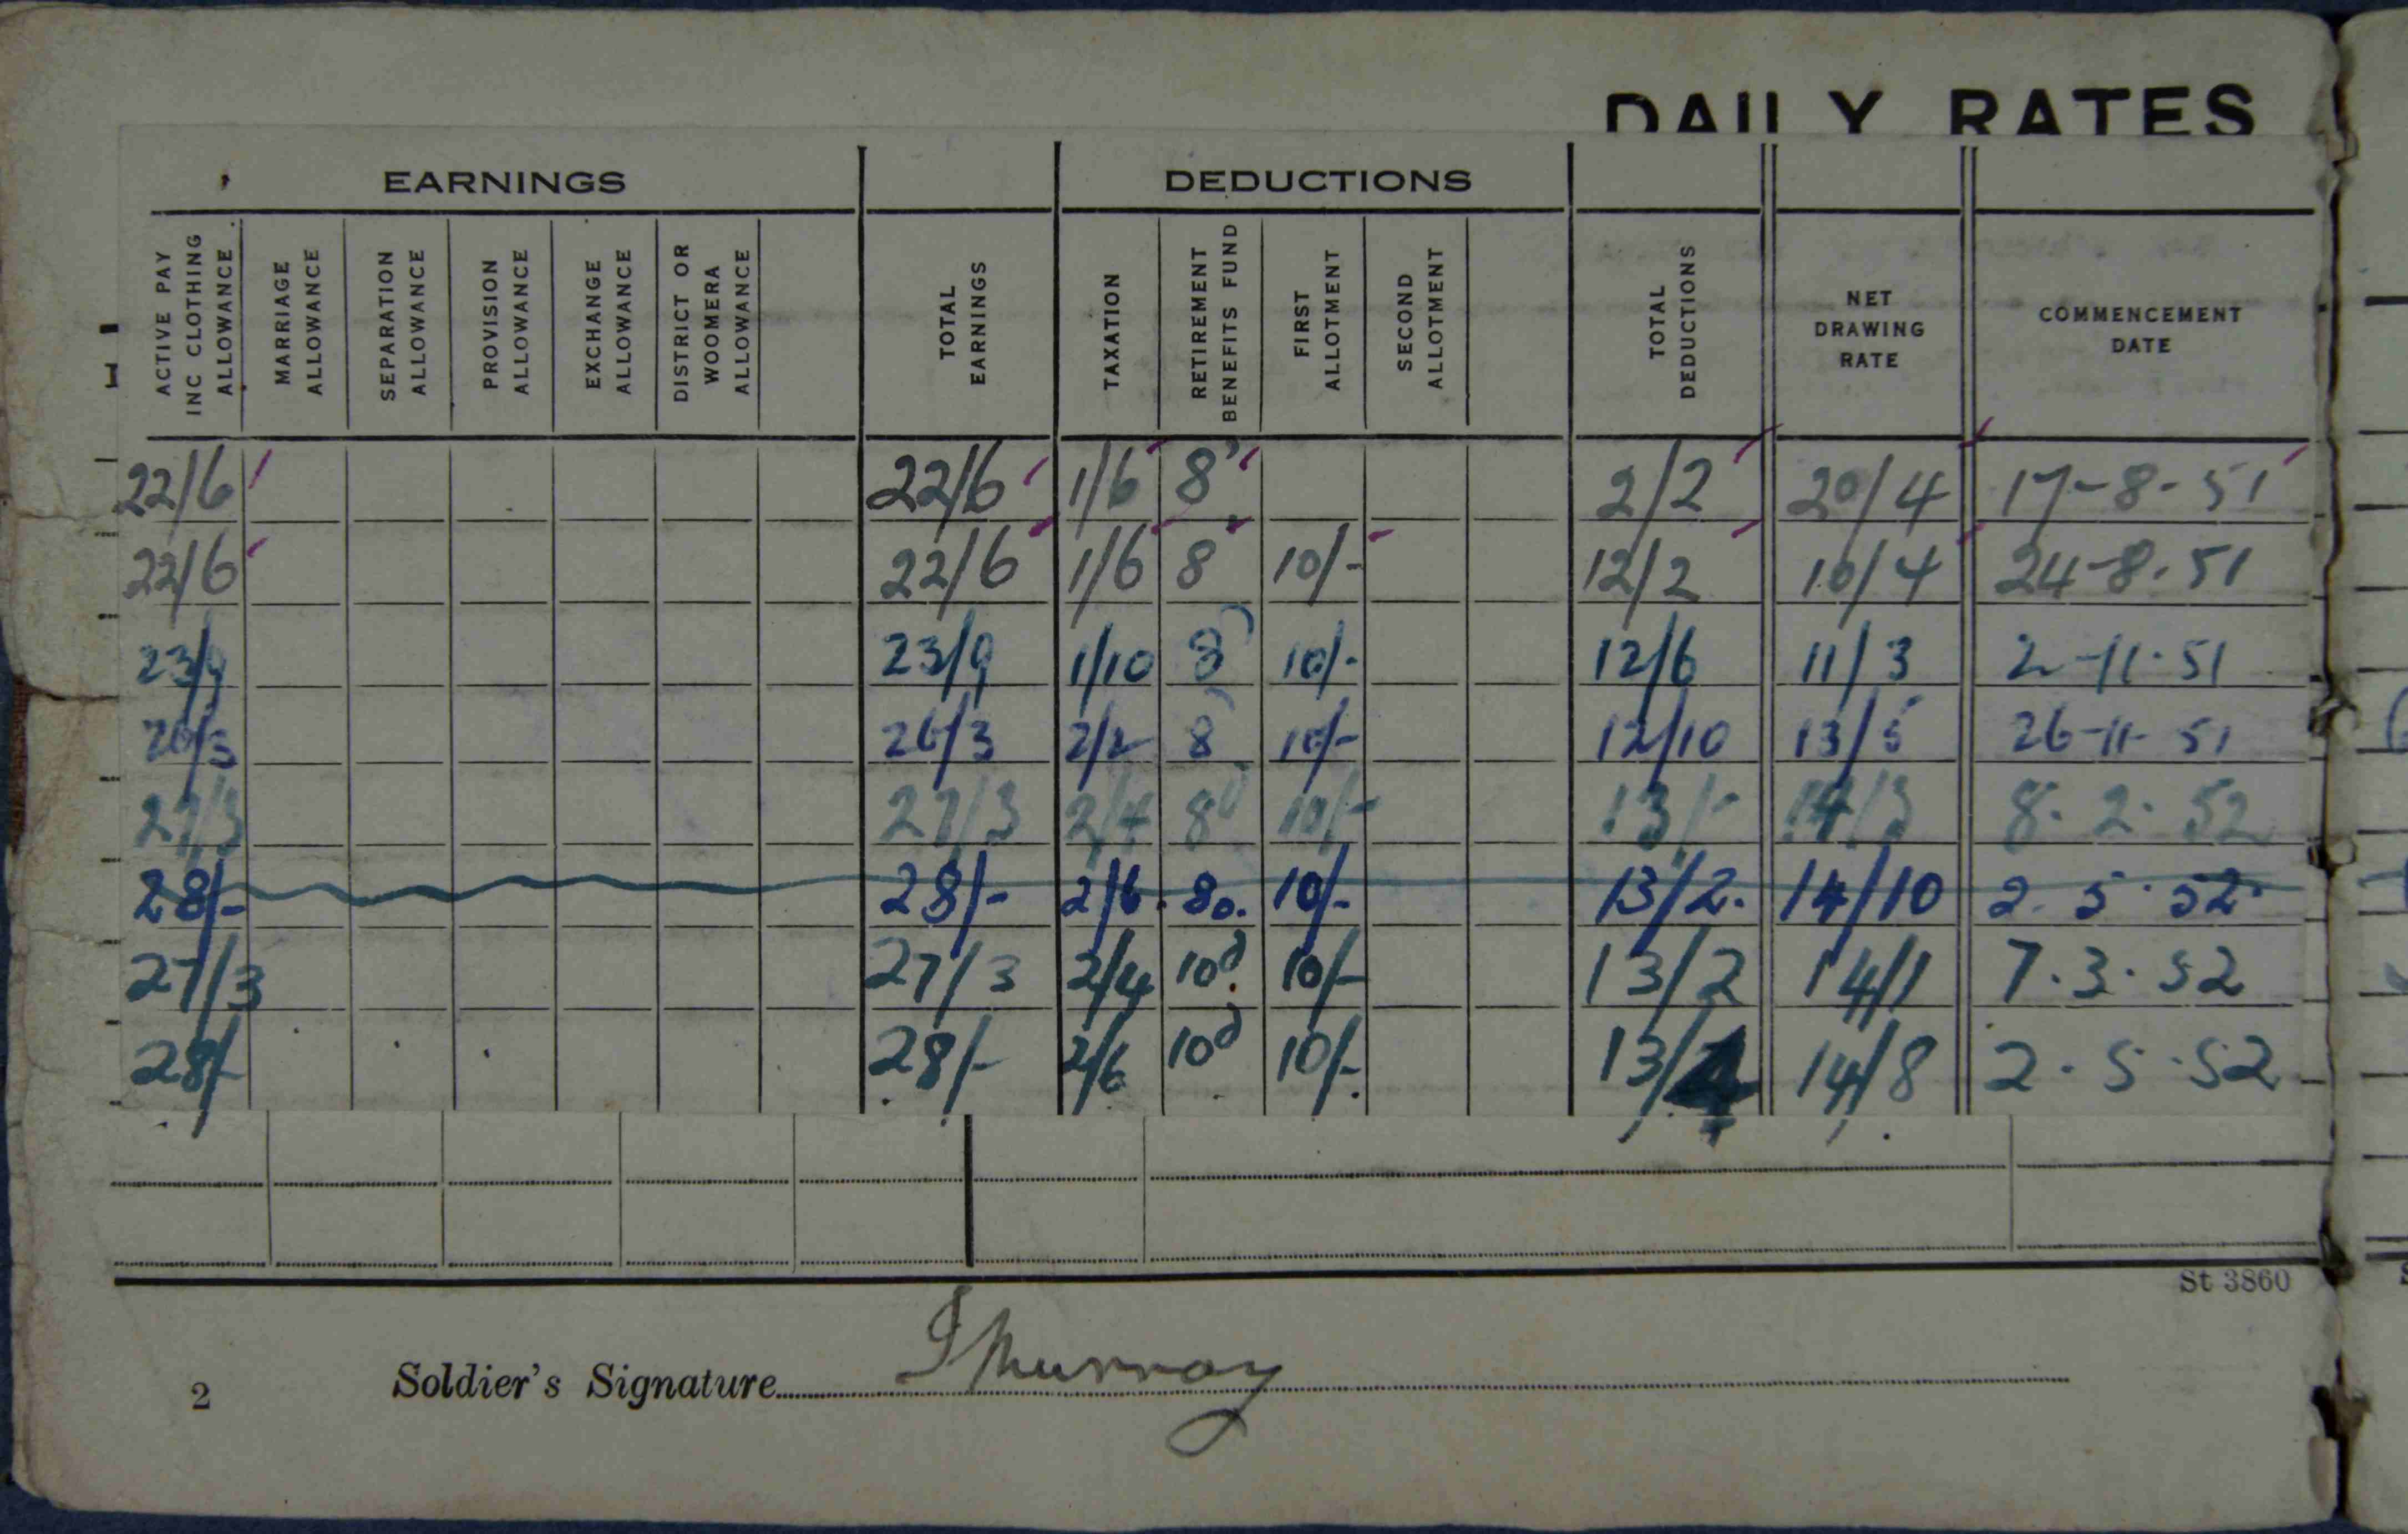 DAILY RATES
EARNINGS DEDUCTIONS
ACTIVE PAY INC CLOTHING ALLOWANCE
MARRIAGE ALLOWANCE
SEPARATION ALLOWANCE
PROVISION ALLOWANCE
EXCHANGE ALLOWANCE
DISTRICT OR WOOMERA ALLOWANCE
TOTAL EARNINGS
TAXATION
RETIREMENT BENEFITS FUND
FIRST ALLOTMENT
SECOND ALLOTMENT
TOTAL DEDUCTIONS
NET DRAWING RATE
COMMENCEMENT DATE
22/6 22/6 1/6 8 2/2 20/4 17-8-51
22/6 22/6 1/6 8 10/- 12/2 10/4 24-8-51
23/9 23/9 1/10 8 10/- 12/6 11/3 2-11-51
26/3 26/3 2/2 8 10/- 12/10 13/5 26-11-51
27/3 27/3 2/4 8d 10/- 13/- 14/3 8.2.52
28/- 28/- 2/6. 8D. 10/- 13/2. 14/10 2.5.52.
27/3 27/3 2/4 10d 10/- 13/2 14/1 7.3.52
28/- 28/- 2/6 10d 10/- 13/4 14/8 2.5.52
St 3860
2 Soldier's Signature I Murray